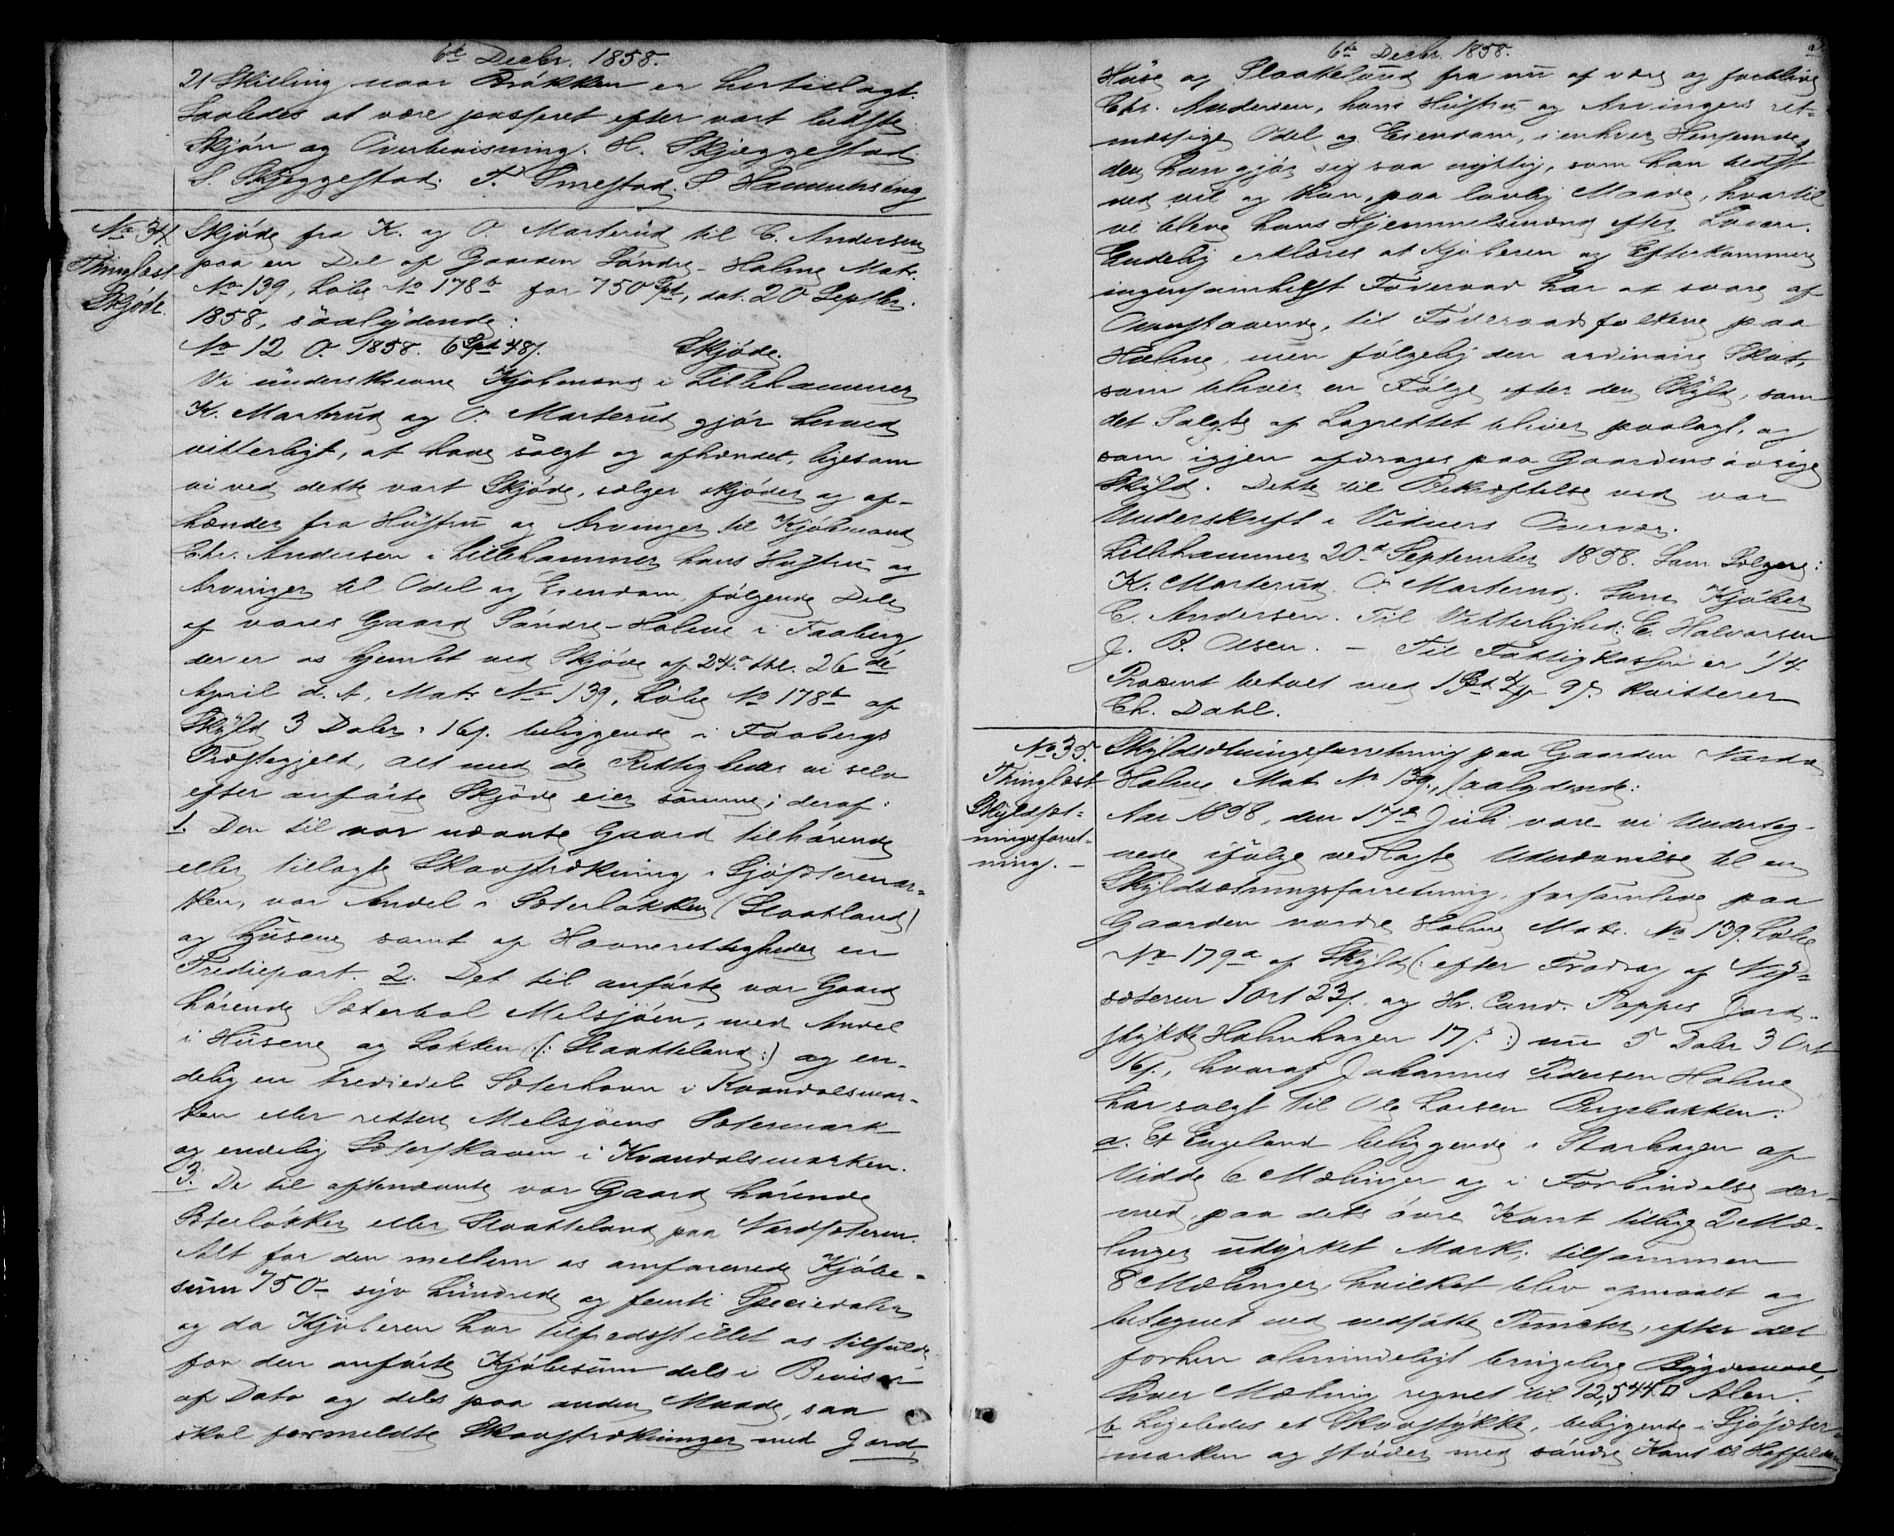 6te Decbr. 1858.
21 Skilling naar Brøkken er hertillagt.
Saaledes at være passeret efter vort bedste
Skjøn og Overbeviisning. H. Skjeggestad
S. Skjeggestad. T. Smestad. S. Hammerseng
No 34.
Thinglæst
Skjøde.
Skjøde fra K. og O. Marterud til C. Andersen
paa en Del af Gaarden Søndre-Holme Matr.
No 139, Løbe No 178b for 750 Spd, dat. 20 Septbr.
1858, saalydende:
No 12 O. 1858. 6 Spd 48/. Skjøde.
Vi underskrevne Kjøbmænd i Lillehammer
K. Marterud og O. Marterud gjør herved
vitterligt, at have solgt og afhændet, ligesom
vi ved dette vort Skjøde, sælger skjøder og af-
hænder fra Hustru og Arvinger til Kjøbmand
Chr. Andersen i Lillehammer hans Hustru og
Arvinger til Odel og Eiendom, følgende Dele
af vores Gaard Søndre-Holme i Faaberg
der er os hjemlet ved Skjøde af 24. thl. 26de
April d. A, Matr No 139, Løbe No 178b af
Skyld 3 Daler " 16/. beliggende i Faabergs
Præstegjeld, Alt med de Rettigheder vi selv
efter anførte Skjøde eier samme; deraf:
1. Den til vor nævnte Gaard tilhørende
eller tillagte Skovstrækning i Sjøsætermar-
ken, vor Andel i Sæterløkken (Slaatland)
og Husene samt af Havnerettigheder en
Trediepart. 2. Det til anførte vor Gaard
hørende Sæterbol Melsjøen, med Andel
i Husene og Løkken (: Slaatteland :) og en-
delig en trediedel Sæterhavn i Kvandalsmar-
ken eller rettere Melsjøens Sætermark
og endelig Sæterskoven i Kvandalsmarken.
3. De til oftenævnte vor Gaard hørende
Sæterløkker eller Slaatteland paa Nordsæteren.
Alt for den mellem os omforenede Kjøbe-
sum 750 syv hundrede og femti Speciedaler
og da Kjøberen har tilfredsstillet os tilfulde
for den anførte Kjøbesum dels i Beviser
af Dato og dels paa anden Maade, saa
skal formeldte Skovstrækninger med Jord,
6te Decbr. 1858.
Huse og Slaatelund fra nu af være og forblive
Chr. Andersen, hans Hustru og Arvingers ret-
mæssige Odel og Eiendom, i enhver Henseende
den han gjør sig saa nyttig, som han bedst
ved vil og kan, paa lovlig Maade, hvortil
vi bleve hans Hjemmelsmænd efter Loven.
Endelig erklæres at Kjøberen og Efterkommere
ingensomhelst Føderaad har at svare af
Ovenstaaende, til Føderaadsfolkene paa
Holme, men følgelig den ordinaire Skat,
som bliver en Følge efter den Skyld, som
det Solgte af Lagrettet bliver paalagt, og
som igjen afdrages paa Gaardens øvrige
Skyld. Dette til Bekræftelse ved vor
Underskrift i Vidners Overvær.
Lillehammer 20d September 1858. Som Sælgere:
K. Marterud. O. Marterud. Som Kjøber
C. Andersen. Til Vitterlighed: E. Halvorsen
J. B. Olsen. – Til Fattigkassen er 1/4.
Procent betalt med 1 Spd 4 9/. kvitterer
Ch. Dahl.
No 35.
Thinglæst
Skyldsæt-
ningsforret-
ning. –
Skyldsætningsforretning paa Gaarden Nordre
Holme Mat No 139, saalydende:
Aar 1858, den 17de Juli vare vi Underteg-
nede ifølge vedlagte Udnævnelse til en
Skyldsætningsforretning, forsamlede paa
Gaarden nordre Holme Matr. No 139. Løbe
No 179a af Skyld (: efter Fradrag af Ny-
sæteren 1 Ort 23/. og Hr. Cand. Poppes Jord-
stykke Holmhagen 17/. :) nu 5 Daler 3 Ort
16/., hvoraf Johannes Pedersen Holme
har solgt til Ole Larsen Bergebakken:
a. Et Engeland beliggende i Storhagen af
Vidde 6 Mælinger og i Forbindelse der-
med, paa dets øvre Kant tillige 2 Mæ-
linger udyrket Mark, tilsammen
8 Mælinger, hvilket blev opmaalt og
betegnet ved nedsatte Pinder, efter det
forhen almindeligt brugelige Bygdemaal,
hver Mæling regnet til 12,544 □ Alen.
b Ligeledes et Skovstykke, beliggende i Sjøsæter-
marken og støder med søndre Kant til